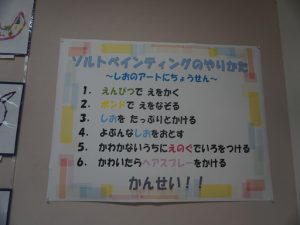 ソルトペインティングのやりかた
～しおのアートにちょうせん～
1. えんぴつで えをかく
2. ボンドで えをなぞる
3. しおを たっぷりとかける
4. よぶんなしおをおとす
5. かわかないうちにえのぐでいろをつける
6. かわいたらヘアスプレーをかける
かんせい！！